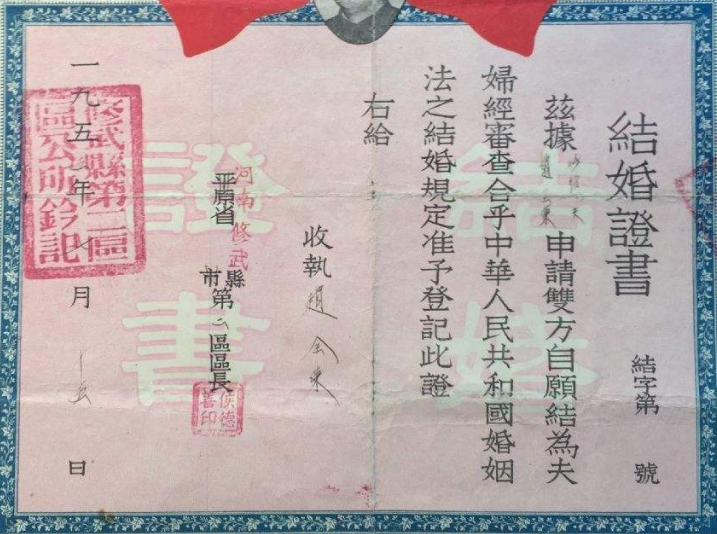 結婚證書
結字第 號
茲據 申請雙方自願結為夫
婦經審查合乎中華人民共和國婚姻
法之結婚規定准予登記此證
右給
收執 趙
平原省 河南修武 縣市第二區區長
侯德善印
一九五 年 月 日
修武縣第二區
區公所鈐記
結婚
證書